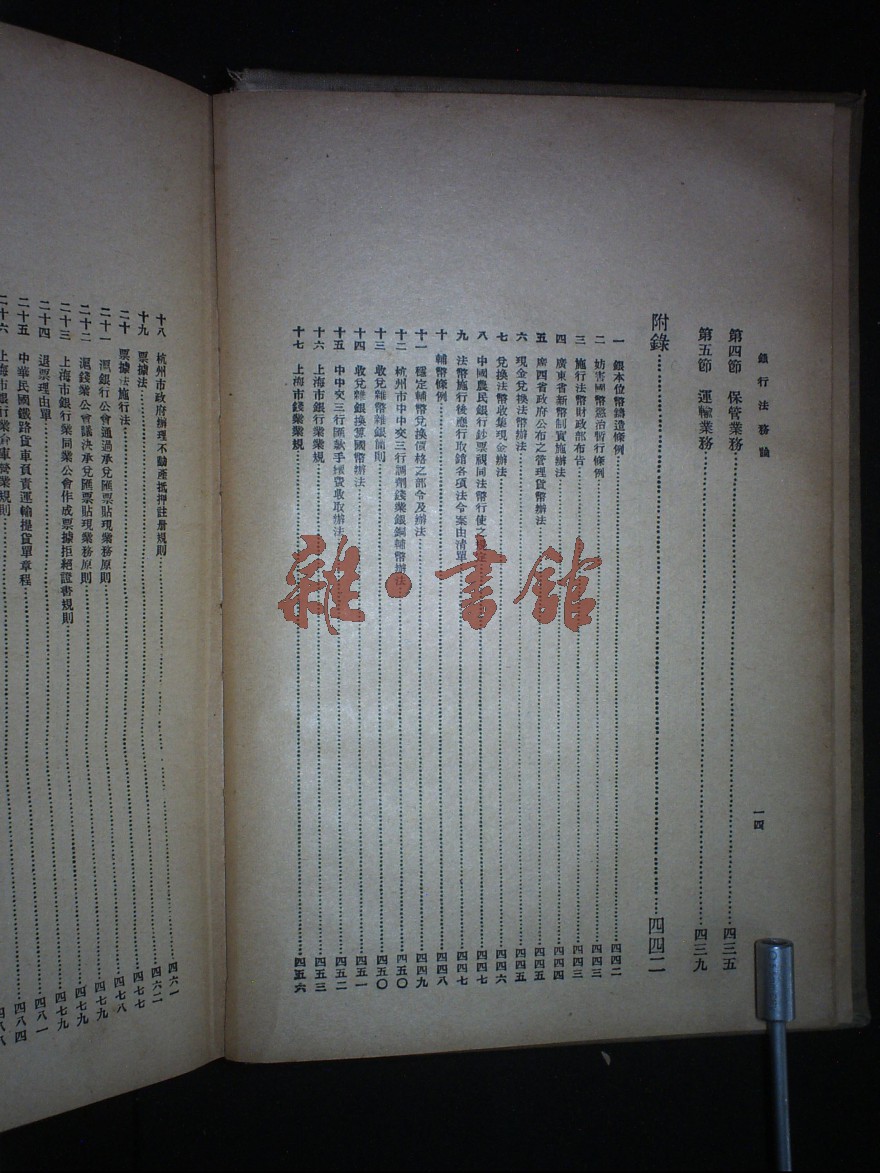 銀行法務論
一四
第四節 保管業務 四三五
第五節 運輸業務 四三九
附錄 四四二
一 銀本位幣鑄造條例 四四二
二 妨害國幣懲治暫行條例 四四三
三 施行法幣財政部布告 四四三
四 廣東省新幣制實施辦法 四四四
五 廣西省政府公布之管理貨幣辦法 四四五
六 現金兌換法幣辦法 四四五
七 兌換法幣收集現金辦法 四四六
八 中國農民銀行鈔票視同法幣行使之 四四七
九 法幣施行後應行取銷各項法令案由清單 四四七
十 輔幣條例 四四八
十一 穩定輔幣兌換價格之部令及辦法 四四九
十二 杭州市中中交三行調劑錢業銀銅輔幣辦法 四五〇
十三 收兌雜幣雜銀簡則 四五〇
十四 收兌雜銀換算國幣辦法 四五一
十五 中中交三行匯款手續費收取辦法 四五二
十六 上海市銀行業業規 四五三
十七 上海市錢業業規 四五六
十八 杭州市政府辦理不動產抵押註册規則 四六一
十九 票據法 四六二
二十 票據法施行法 四七七
二十一 滬銀行公會通過承兌匯票貼現業務原則 四七八
二十二 滬錢業公會議決承兌匯票貼現業務原則 四七九
二十三 上海市銀行業同業公會作成票據拒絕證書規則 四七九
二十四 退票理由單 四八一
二十五 中華民國鐵路貨車負責運輸提貨單章程 四八四
二十六 上海市銀行業倉庫營業規則 四八八
雜·書館